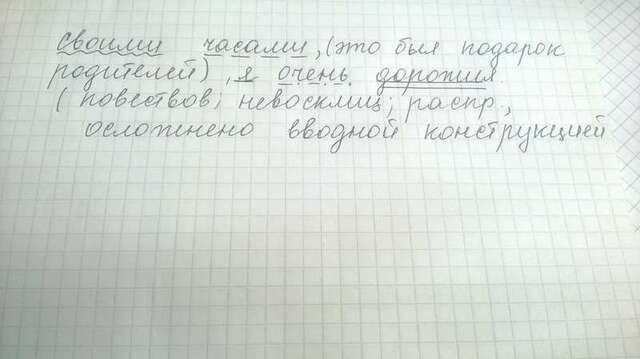 своими часами, (это был подарок
родителей), я очень дорожил
(повествов; невосклиц; распр.,
осложнено вводной конструкцией